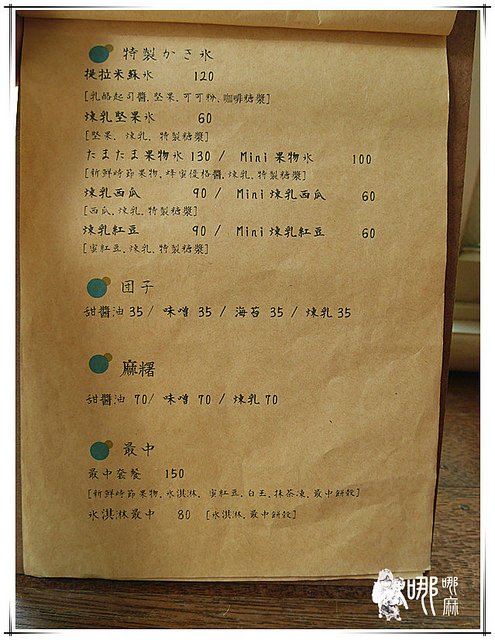 特製かき氷
提拉米蘇冰 120
[乳酪起司醬、堅果、可可粉、咖啡糖漿]
煉乳堅果冰 60
[堅果、煉乳、特製糖漿]
たまたま果物冰 130 / Mini 果物冰 100
[新鮮時節果物、蜂蜜優格醬、煉乳、特製糖漿]
煉乳西瓜 90 / Mini 煉乳西瓜 60
[西瓜、煉乳、特製糖漿]
煉乳紅豆 90 / Mini 煉乳紅豆 60
[蜜紅豆、煉乳、特製糖漿]
団子
甜醬油 35 / 味噌 35 / 海苔 35 / 煉乳 35
麻糬
甜醬油 70 / 味噌 70 / 煉乳 70
最中
最中套餐 150
[新鮮時節果物、冰淇淋、蜜紅豆、白玉、抹茶凍、最中餅殼]
冰淇淋最中 80 [冰淇淋、最中餅殼]
哪哪麻